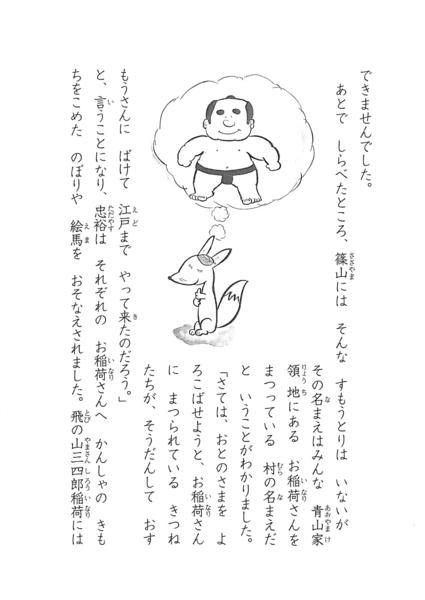 できませんでした。
あとで しらべたところ、篠山には そんな すもうとりは いないが
その名まえはみんな 青山家
領地にある お稲荷さんを
まつっている 村の名まえだ
と いうことがわかりました。
「さては、おとのさまを よ
ろこばせようと、お稲荷さん
に まつられている きつね
たちが、そうだんして おす
もうさんに ばけて 江戸まで やって来たのだろう。」
と、言うことになり、忠裕は それぞれの お稲荷さんへ かんしゃの きも
ちをこめた のぼりや 絵馬を おそなえされました。飛の山三四郎稲荷には